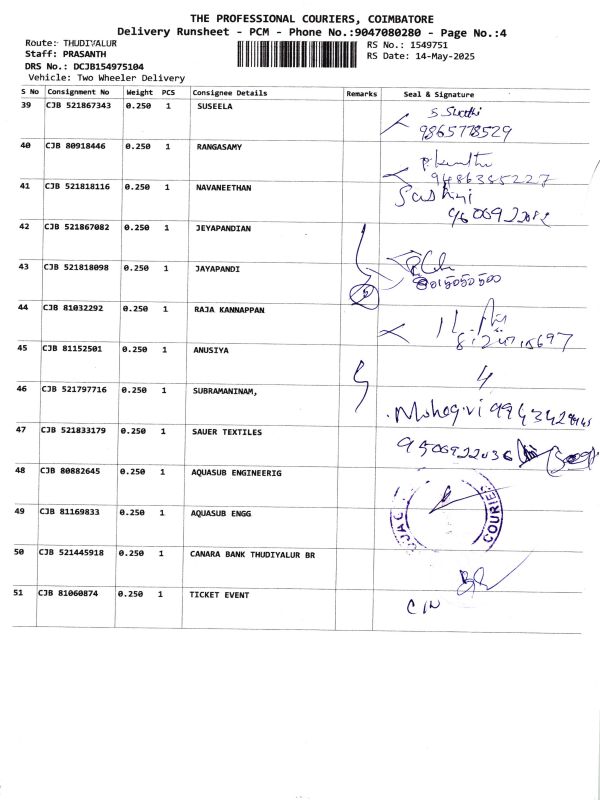 THE PROFESSIONAL COURIERS, COIMBATORE
Delivery Runsheet - PCM - Phone No.:9047080280 - Page No.:4
Route: THUDIYALUR
Staff: PRASANTH
DRS No.: DCJB154975104
Vehicle: Two Wheeler Delivery
RS No.: 1549751
RS Date: 14-May-2025
S No Consignment No Weight PCS Consignee Details Remarks Seal & Signature
39 CJB 521867343 0.250 1 SUSEELA
9865778529
40 CJB 80918446 0.250 1 RANGASAMY
9486385227
41 CJB 521818116 0.250 1 NAVANEETHAN
Sashini
42 CJB 521867082 0.250 1 JEYAPANDIAN
43 CJB 521818098 0.250 1 JAYAPANDI
8015050500
44 CJB 81032292 0.250 1 RAJA KANNAPPAN
45 CJB 81152501 0.250 1 ANUSIYA
46 CJB 521797716 0.250 1 SUBRAMANINAM,
47 CJB 521833179 0.250 1 SAUER TEXTILES
9500922036
48 CJB 80882645 0.250 1 AQUASUB ENGINEERIG
COURIER
49 CJB 81169833 0.250 1 AQUASUB ENGG
50 CJB 521445918 0.250 1 CANARA BANK THUDIYALUR BR
51 CJB 81060874 0.250 1 TICKET EVENT